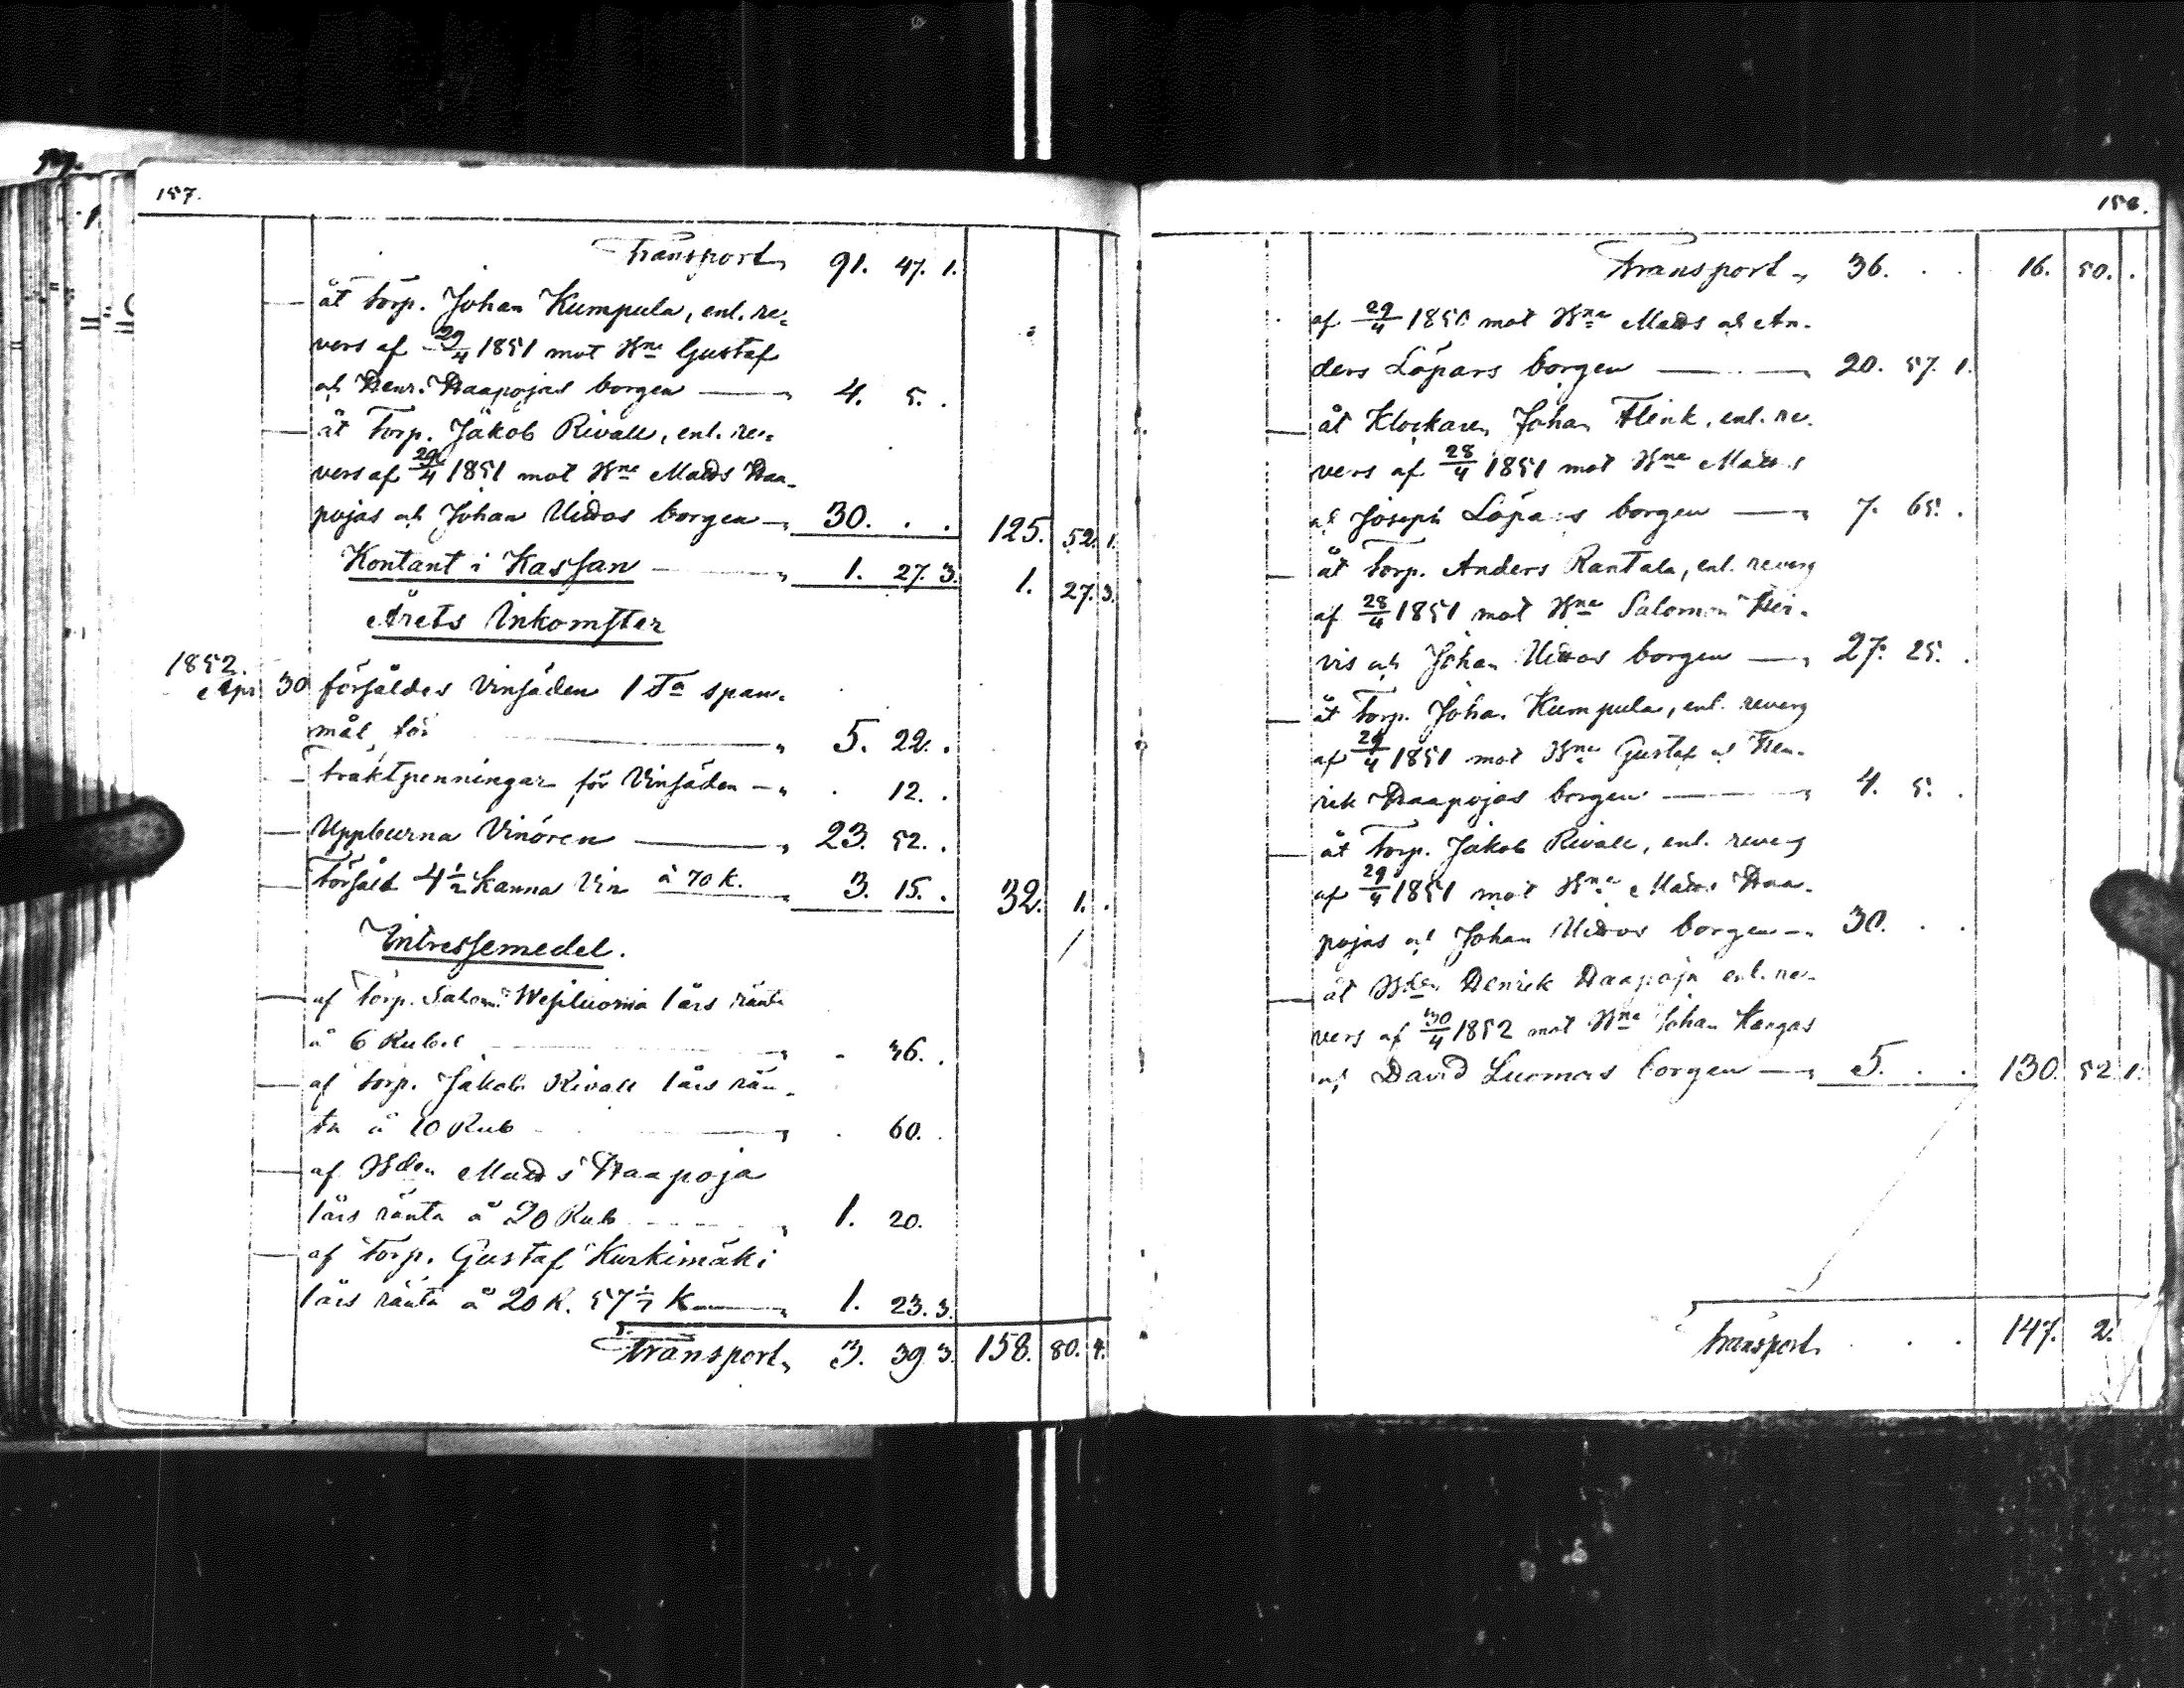 157.
Transport, 91. 47. 1.
— åt Torp. Johan Kumpula, enl. re-
vers af 29/4 1851 mot Bne Gustaf
och Henr. Haapojas borgen —, 4. 5. .
— åt Torp. Jakob Rivall, enl. re-
vers af 29/4 1851 mot Bne Matts Haa-
pojas och Johan Uitos borgen —, 30. . . 125. 52. 1.
Kontant i Kassan —, 1. 27. 3. 1. 27. 3.
Årets Inkomster
1852.
Apr. 30 försåldes Vinsäden 1 Ta span-
mål, för —, 5. 22. .
— Fraktpenningar för Vinsäden —, . 12. .
— Uppburna Vinören —, 23. 52. .
— Försåld 4½ Kanna Vin à 70 K. 3. 15. . 32. 1. .
Intressemedel.
— af Torp. Salom: Wesiluoma 1 års ränta
à 6 Rubel —, - 36. .
— af Torp. Jakob Rivall 1 års rän-
ta à 10 Rub —, . 60. .
— af Bden Matts Haapoja
1 års ränta à 20 Rub —, 1. 20.
— af Torp. Gustaf Kurkimäki
1 års ränta à 20 R. 57 1/7 K —, 1. 23. 3.
Transport, 3. 39 3. 158. 80. 4.
158.
Transport, 36. . . 16. 50. .
af 29/4 1850 mot Bne Matts och An-
ders Löpars borgen —, 20. 57. 1.
— åt Klockaren Johan Flink, enl. re-
vers af 28/4 1851 mot Bne Matts
och Joseph Löpars borgen —, 7. 65. .
— åt Torp. Anders Rantala, enl. revers
af 28/4 1851 mot Bne Salomon Hir-
vis och Johan Uitos borgen —, 27. 25. .
— åt Torp. Johan Kumpula, enl. revers
af 29/4 1851 mot Bne Gustaf och Hen-
rik Haapojas borgen —, 4. 5. .
— åt Torp. Jakob Rivall, enl. revers
af 29/4 1851 mot Bne Matts Haa-
pojas och Johan Uitos borgen —, 30. . .
— åt Bden Henrik Haapoja enl. re-
vers af 30/4 1852 mot Bne Johan Kangas
och David Luomas borgen —, 5. . . 130. 52. 1.
Transport, . . . 147. 2.